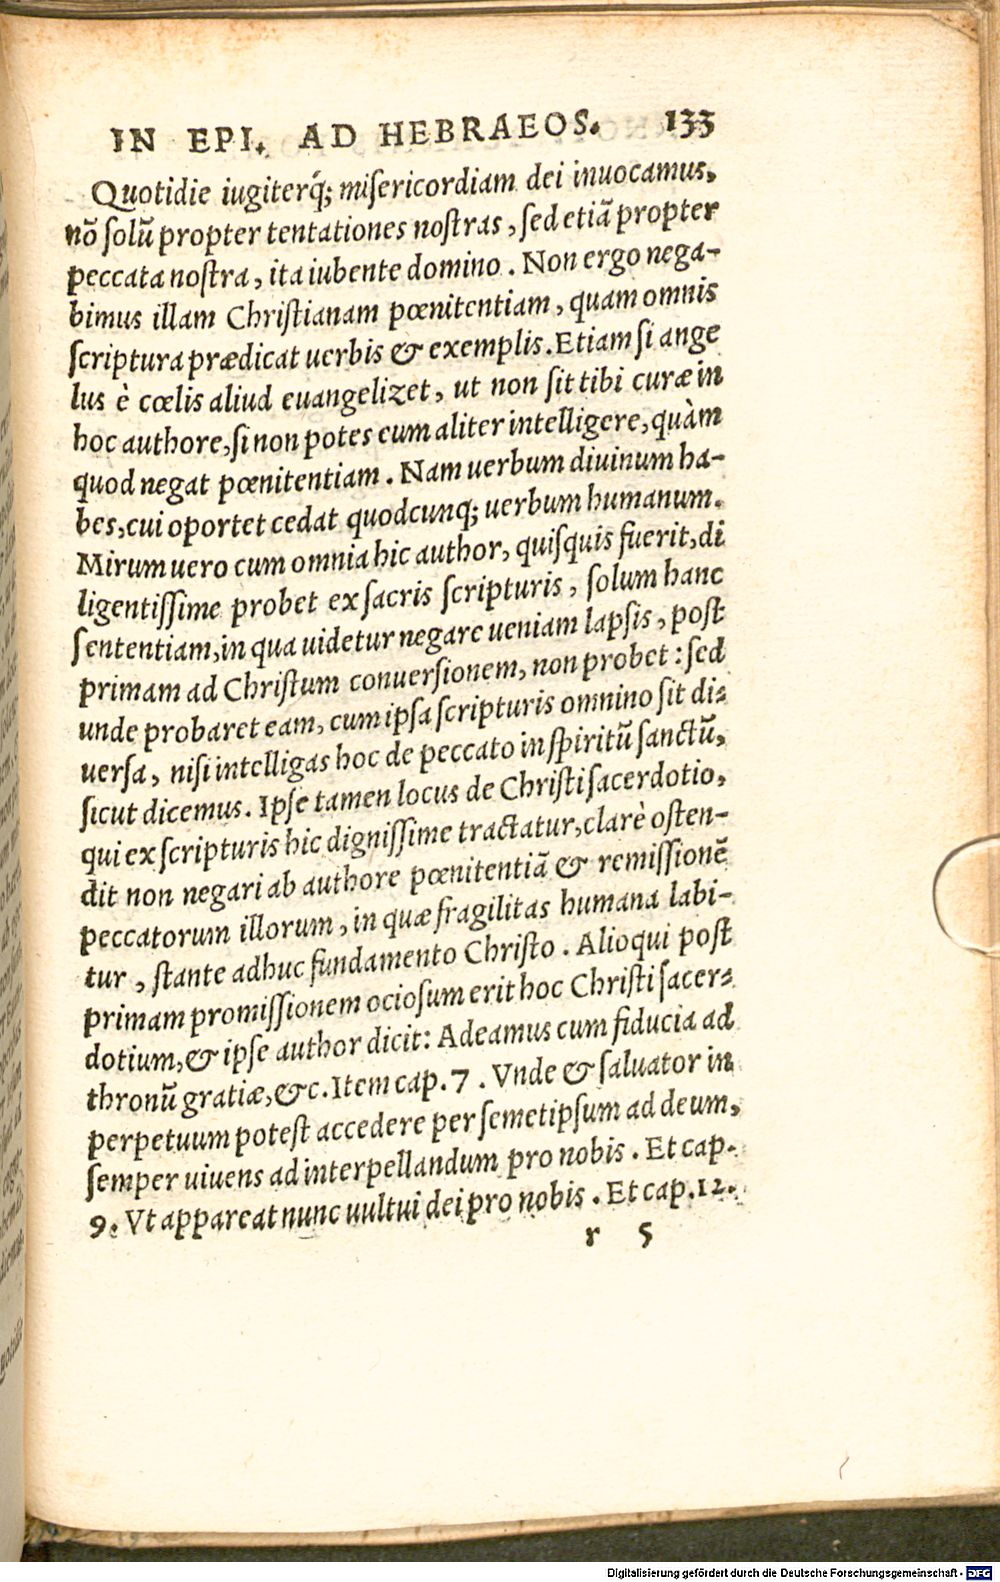 IN EPI. AD HEBRAEOS. 133
Quotidie iugiterq́; misericordiam dei inuocamus,
nō solū propter tentationes nostras, sed etiā propter
peccata nostra, ita iubente domino. Non ergo nega-
bimus illam Christianam pœnitentiam, quam omnis
scriptura prædicat uerbis & exemplis. Etiam si ange
lus è cœlis aliud euangelizet, ut non sit tibi curæ in
hoc authore, si non potes eum aliter intelligere, quàm
quod negat pœnitentiam. Nam uerbum diuinum ha-
bes, cui oportet cedat quodcunq; uerbum humanum.
Mirum uero cum omnia hic author, quisquis fuerit, di
ligentissime probet ex sacris scripturis, solum hanc
sententiam, in qua uidetur negare ueniam lapsis, post
primam ad Christum conuersionem, non probet: sed
unde probaret eam, cum ipsa scripturis omnino sit di-
uersa, nisi intelligas hoc de peccato in spiritū sanctū,
sicut dicemus. Ipse tamen locus de Christi sacerdotio,
qui ex scripturis hic dignissime tractatur, clarè osten-
dit non negari ab authore pœnitentiā & remissionē
peccatorum illorum, in quæ fragilitas humana labi-
tur, stante adhuc fundamento Christo. Alioqui post
primam promissionem ociosum erit hoc Christi sacer-
dotium, & ipse author dicit: Adeamus cum fiducia ad
thronū gratiæ, &c. Item cap. 7. Vnde & saluator in
perpetuum potest accedere per semetipsum ad deum,
semper uiuens ad interpellandum pro nobis. Et cap.
9. Vt appareat nunc uultui dei pro nobis. Et cap. 12.
r 5
Digitalisierung gefördert durch die Deutsche Forschungsgemeinschaft - DFG